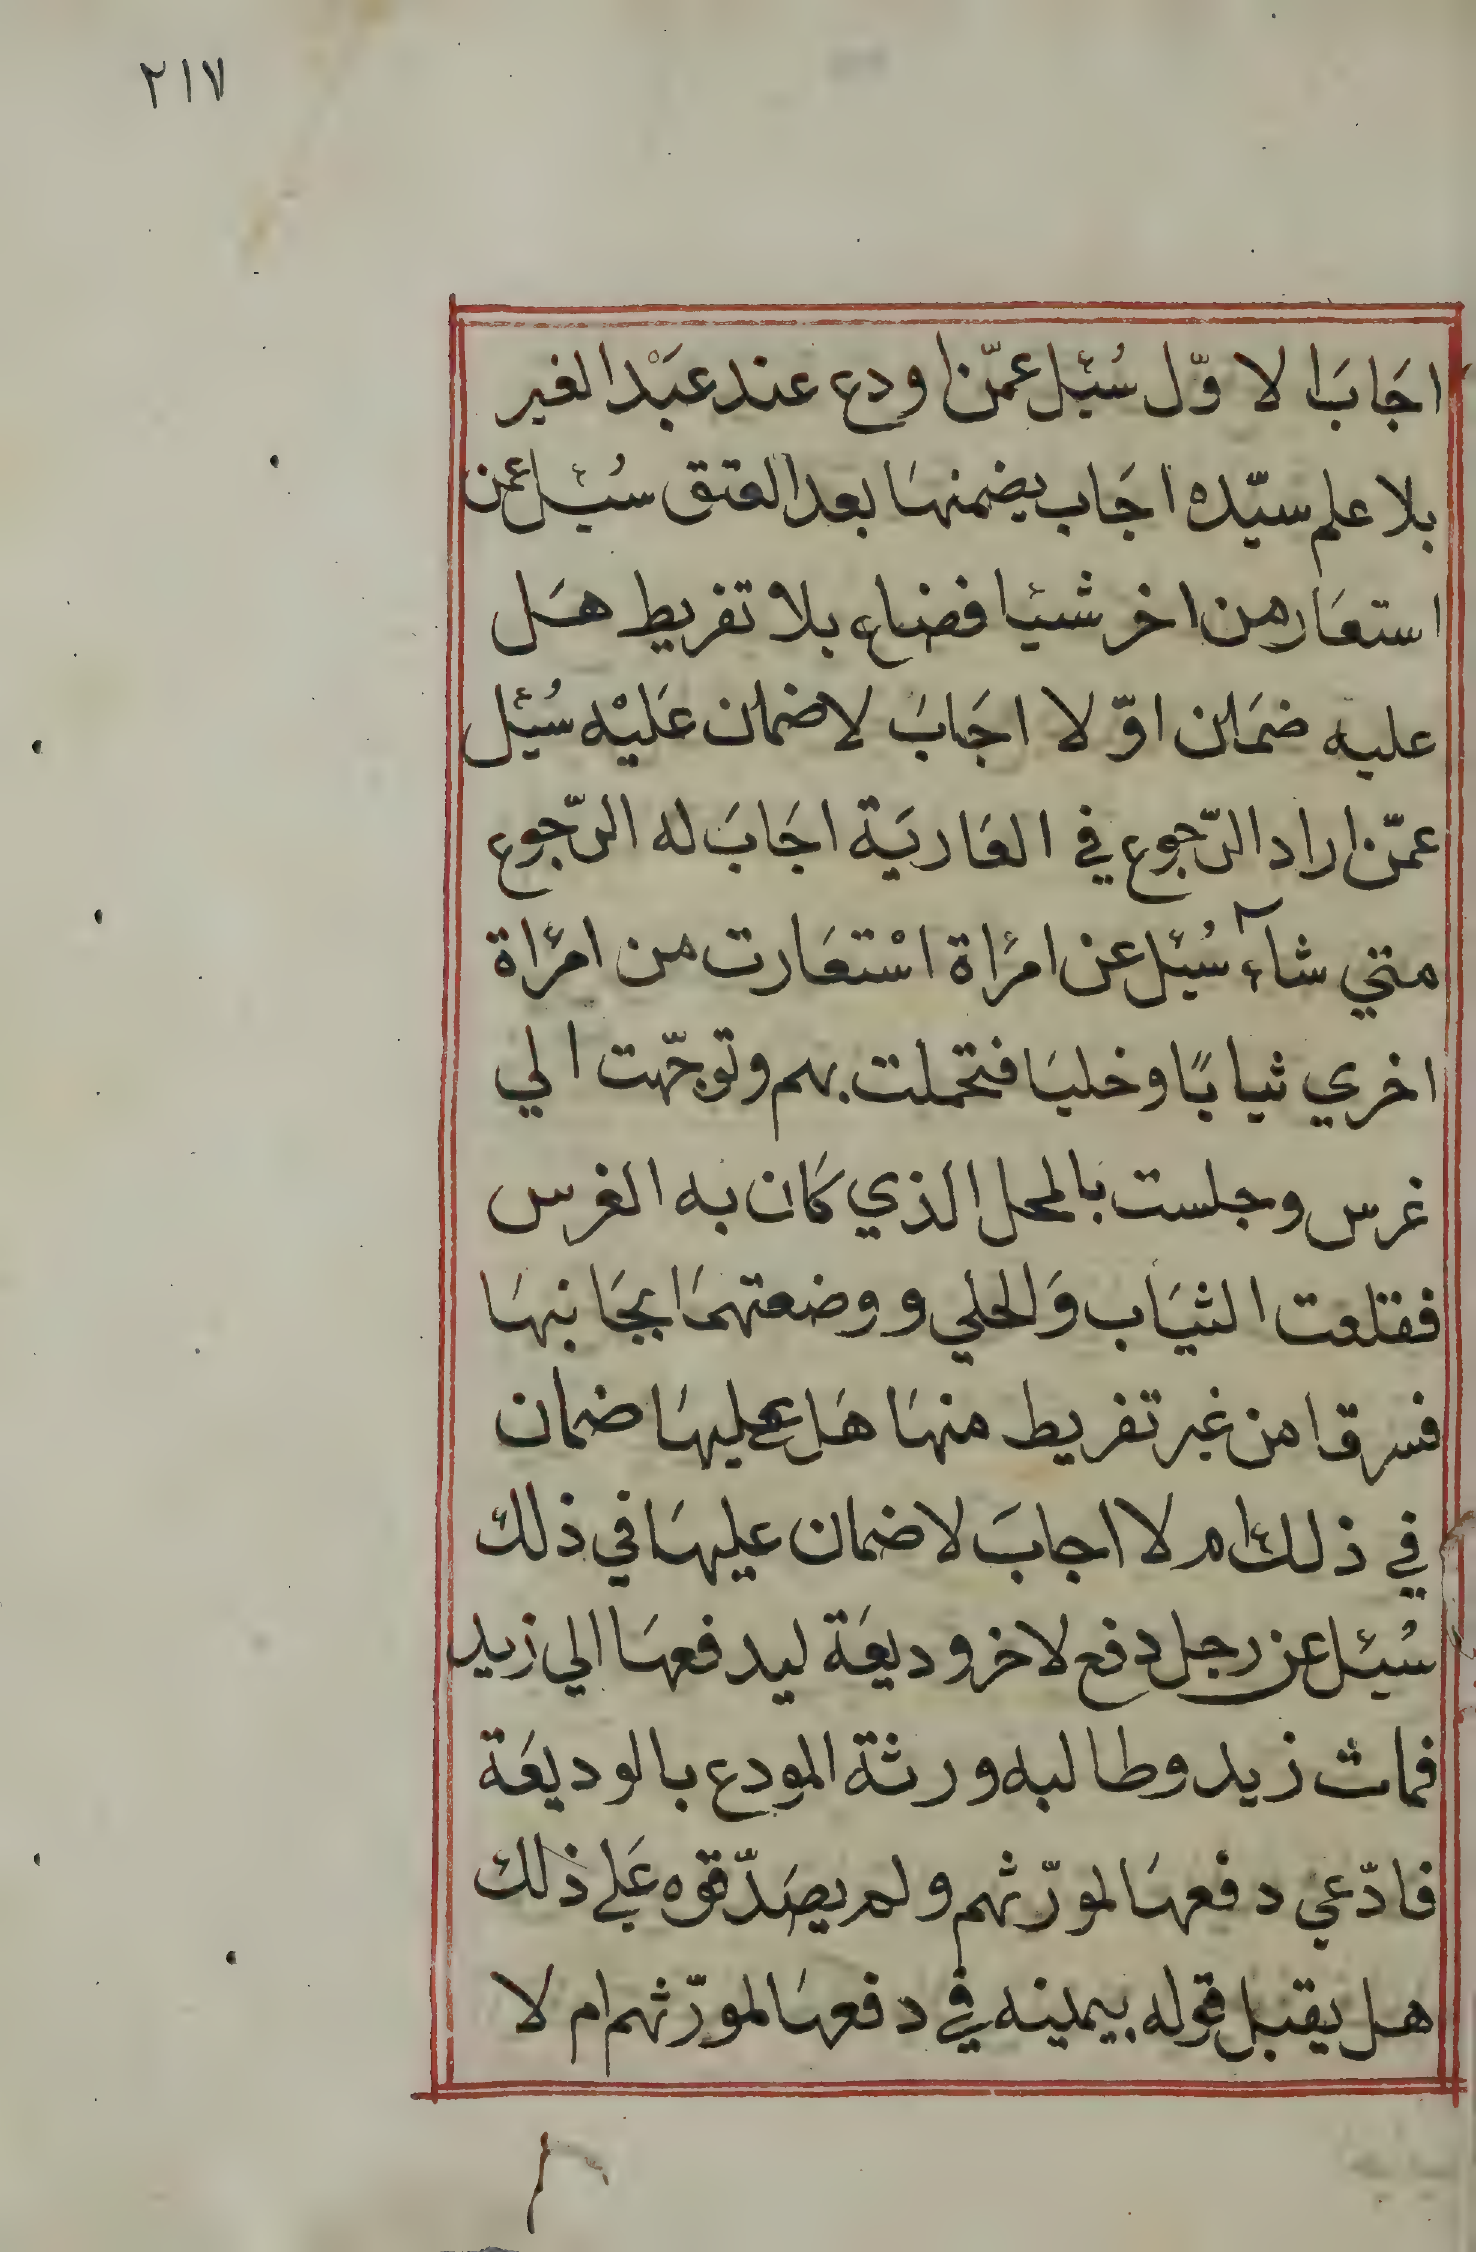 ٢١٧
اجَابَ الاوّل سُئل عمّن اودع عند عَبْد الغير
بلا علم سيّده اجَاب يضمنهَا بعد العتق سُئل عمن
استعَار من اخر شيئا فضاع بلا تفريط هَل
عليه ضمَان اوّلا اجَابَ لا ضمان عَليْه سُئل
عمّن اراد الرّجوع في العَاريَة اجَابَ له الرّجوع
متي شآء سُئل عن امرٔاة اسْتعَارت من امرٔاة
اخري ثيابًا وخليَا فتحملت بهم وتوجّهت الي
غرس وجلست بالمحل الذي كَان به الغرس
فقلعت الثيَاب وَالحلي ووضعتهمَا بجَانبهَا
فسرقا من غير تفريط منهَا هَل عليهَا ضمان
في ذلك ام لا اجابَ لا ضمان عليهَا في ذلك
سُئل عن رجل دفع لاخر وديعَة ليدفعهَا الي زيد
فمات زيد وطالبه ورثة المودع بالوديعَة
فادّعي دفعهَا لمورّثهم ولم يصَدّقوه عَلي ذلك
هل يقبل قوله بيمينه في دفعهَا لمورّثهم ام لا